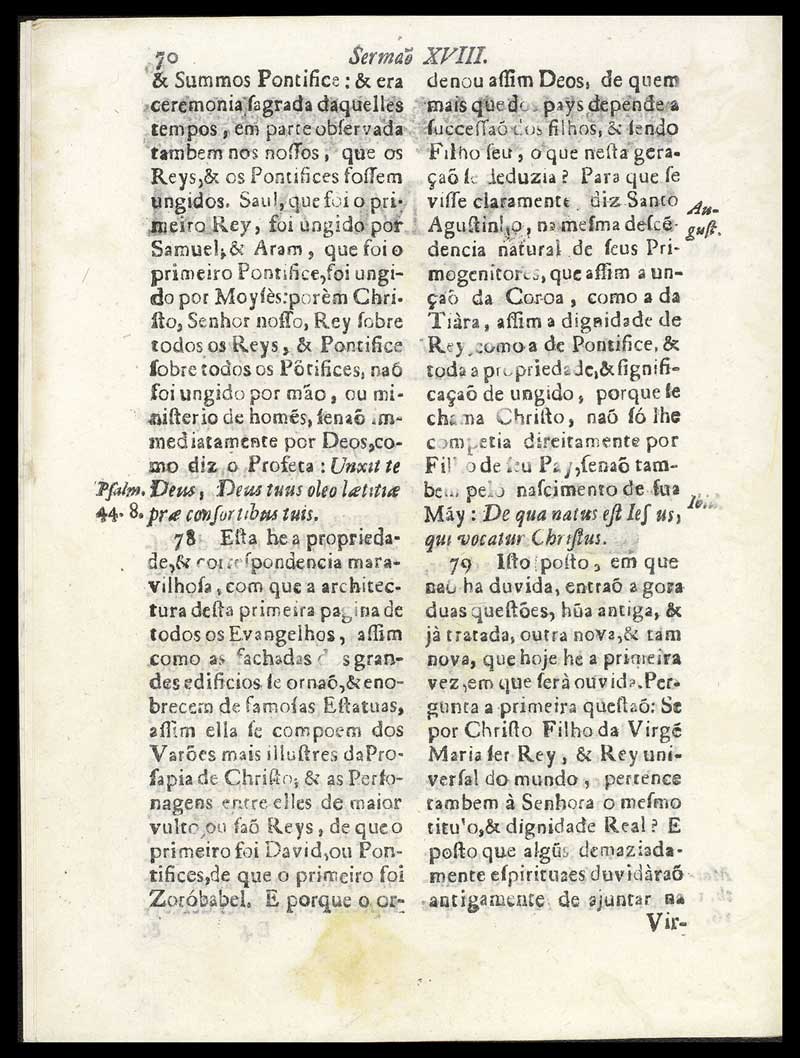 70 Sermaõ XVIII.
& Summos Pontifice: & era
ceremonia ſagrada daquelles
tempos, em parte obſervada
tambem nos noſſos, que os
Reys,& os Pontifices foſſem
ungidos. Saul, que foi o pri-
meiro Rey, foi ungido por
Samuel;& Aram, que foi o
primeiro Pontifice,foi ungi-
do por Moyſès:porèm Chri-
ſto, Senhor noſſo, Rey ſobre
todos os Reys, & Pontifice
ſobre todos os Põtifices, naõ
foi ungido por mão, ou mi-
niſterio de homẽs, ſenaõ im-
mediatamente por Deos,co-
mo diz o Profeta: Unxit te
Pſalm. Deus, Deus tuus oleo lætitiæ
44. 8. præ conſortibus tuis.
78 Eſta he a proprieda-
de,& correſpondencia mara-
vilhoſa, com que a architec-
tura deſta primeira pagina de
todos os Evangelhos, aſſim
como as fachadas dos gran-
des edificios ſe ornaõ,& eno-
brecem de famoſas Eſtatuas,
aſſim ella ſe compoem dos
Varões mais illuſtres da Pro-
ſapia de Chriſto; & as Perſo-
nagens entre elles de maior
vulto,ou ſaõ Reys, de que o
primeiro foi David,ou Pon-
tifices,de que o primeiro foi
Zoróbabel. E porque o or-
denou aſſim Deos, de quem
mais que dos pays depende a
ſucceſſaõ dos filhos, & ſendo
Filho ſeu, o que neſta gera-
çaõ ſe deduzia? Para que ſe
viſſe claramente, diz Santo
Au-
Aguſtinho, na meſma deſcẽ-
guſt.
dencia natural de ſeus Pri-
mogenitores, que aſſim a un-
çaõ da Coroa, como a da
Tiàra, aſſim a dignidade de
Rey,como a de Pontifice, &
toda a propriedade,& ſignifi-
caçaõ de ungido, porque ſe
chama Chriſto, naõ ſó lhe
competia direitamente por
Filho de ſeu Pay,ſenaõ tam-
bem pelo naſcimento de ſua
Mãy: De qua natus eſt Ieſus,
qui vocatur Chriſtus.
79 Iſto poſto, em que
naõ ha duvida, entraõ agora
duas queſtões, hũa antiga, &
jà tratada, outra nova,& tam
nova, que hoje he a primeira
vez,em que ſerà ouvida.Per-
gunta a primeira queſtaõ: Se
por Chriſto Filho da Virgẽ
Maria ſer Rey, & Rey uni-
verſal do mundo, pertence
tambem à Senhora o meſmo
titulo,& dignidade Real? E
poſto que algũs demaziada-
mente eſpirituaes duvidàraõ
antigamente de ajuntar na
Vir-